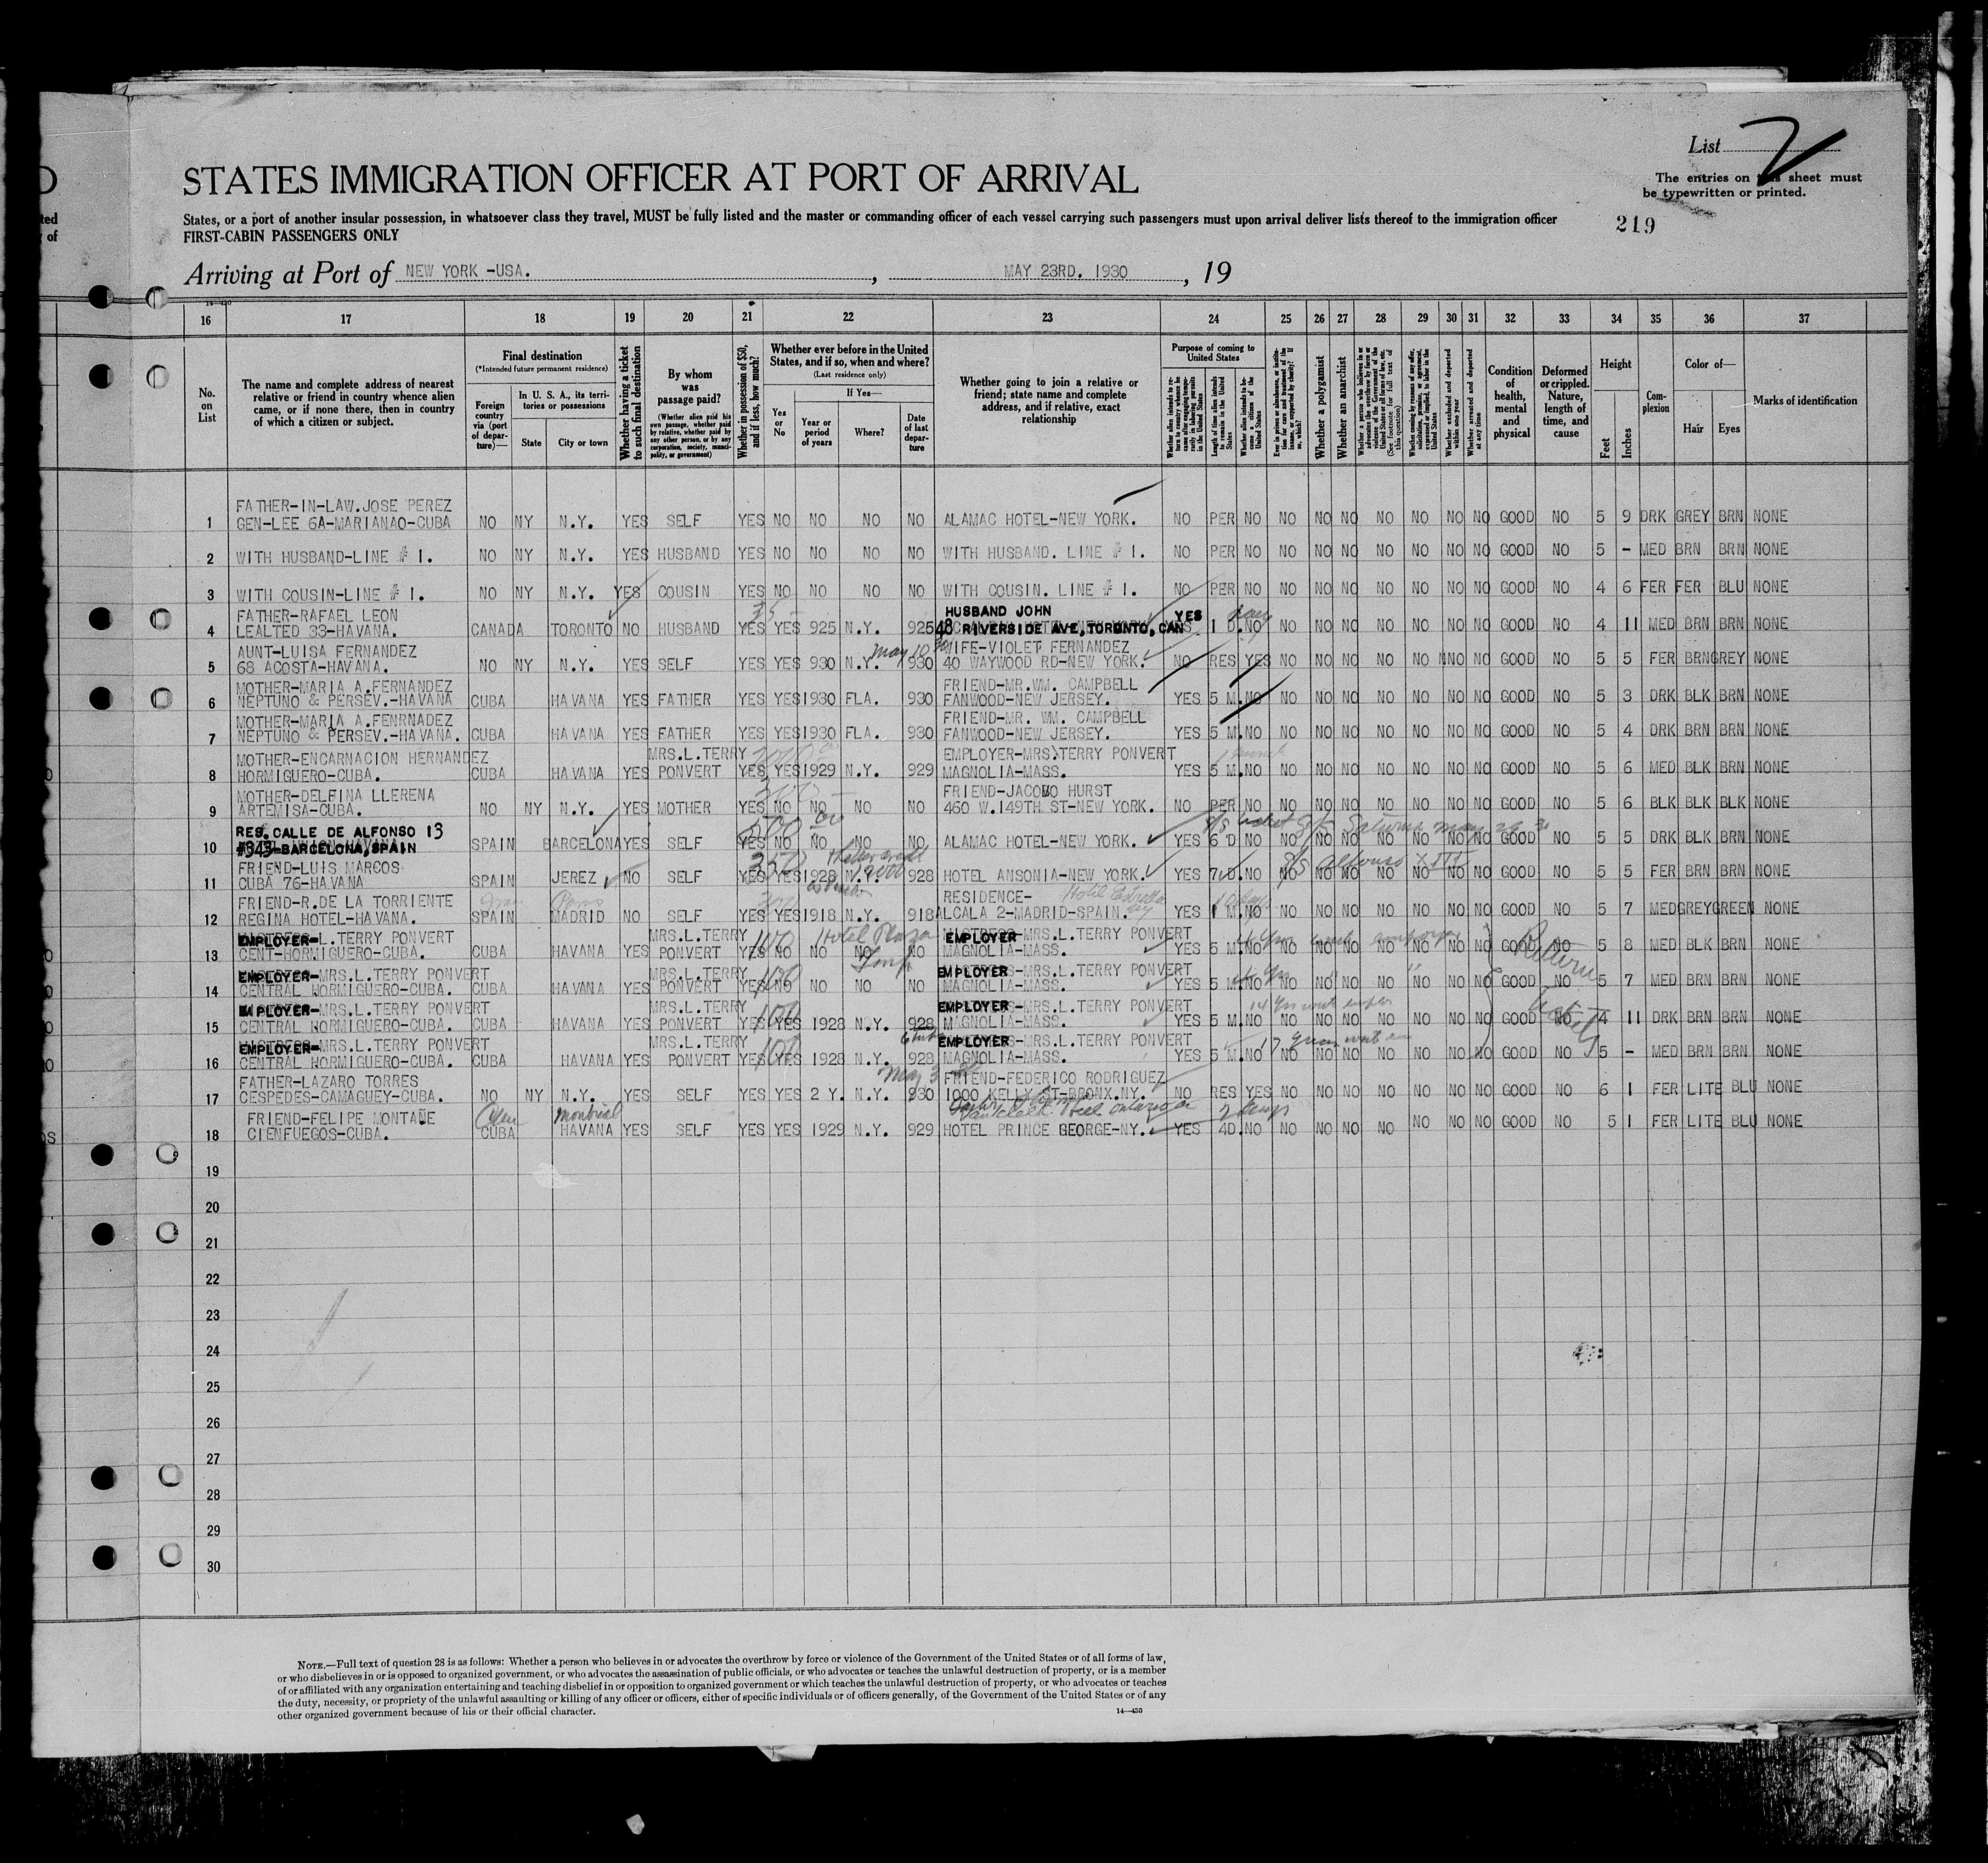 List 2
STATES IMMIGRATION OFFICER AT PORT OF ARRIVAL
The entries on this sheet must
be typewritten or printed.
States, or a port of another insular possession, in whatsoever class they travel, MUST be fully listed and the master or commanding officer of each vessel carrying such passengers must upon arrival deliver lists thereof to the immigration officer
FIRST-CABIN PASSENGERS ONLY
219
Arriving at Port of NEW YORK -USA. , MAY 23RD. 1930 , 19
14-430
16 17 18 19 20 21 22 23 24 25 26 27 28 29 30 31 32 33 34 35 36 37
No. on List
The name and complete address of nearest relative or friend in country whence alien came, or if none there, then in country of which a citizen or subject.
Final destination
(*Intended future permanent residence)
Foreign country via (port of departure)—
In U. S. A., its territories or possessions
State
City or town
Whether having a ticket to such final destination
By whom was passage paid?
(Whether alien paid his own passage, whether paid by relative, whether paid by any other person, or by any corporation, society, municipality, or government)
Whether in possession of $50, and if less, how much?
Whether ever before in the United States, and if so, when and where?
(Last residence only)
Yes or No
If Yes—
Year or period of years
Where?
Date of last departure
Whether going to join a relative or friend; state name and complete address, and if relative, exact relationship
Purpose of coming to United States
Whether alien intends to return to country whence he came after engaging temporarily in laboring pursuits in the United States
Length of time alien intends to remain in the United States
Whether alien intends to become a citizen of the United States
Ever in prison or almshouse, or institution for care and treatment of the insane, or supported by charity? If so, which?
Whether a polygamist
Whether an anarchist
(See footnote for full text of this question)
Whether excluded and deported within one year
Whether arrested and deported at any time
Condition of health, mental and physical
Deformed or crippled. Nature, length of time, and cause
Height
Feet
Inches
Complexion
Color of—
Hair
Eyes
Marks of identification
FATHER-IN-LAW.JOSE PEREZ
1 GEN-LEE 6A-MARIANAO-CUBA NO NY N.Y. YES SELF YES NO NO NO NO ALAMAC HOTEL-NEW YORK. NO PER NO NO NO NO NO NO NO NO GOOD NO 5 9 DRK GREY BRN NONE
2 WITH HUSBAND-LINE # 1. NO NY N.Y. YES HUSBAND YES NO NO NO NO WITH HUSBAND. LINE # 1. NO PER NO NO NO NO NO NO NO NO GOOD NO 5 - MED BRN BRN NONE
3 WITH COUSIN-LINE # 1. NO NY N.Y. YES COUSIN YES NO NO NO NO WITH COUSIN. LINE # 1. NO PER NO NO NO NO NO NO NO NO GOOD NO 4 6 FER FER BLU NONE
FATHER-RAFAEL LEON HUSBAND JOHN YES
4 LEALTED 33-HAVANA. CANADA TORONTO NO HUSBAND YES YES 925 N.Y. 925 48 RIVERSIDE AVE,TORONTO,CAN 1 D. NO NO NO NO NO NO NO NO GOOD NO 4 11 MED BRN BRN NONE
AUNT-LUISA FERNANDEZ May 10 WIFE-VIOLET FERNANDEZ
5 68 ACOSTA-HAVANA. NO NY N.Y. YES SELF YES YES 930 N.Y. 930 40 WAYWOOD RD-NEW YORK. NO RES YES NO NO NO NO NO NO NO GOOD NO 5 5 FER BRN GREY NONE
MOTHER-MARIA A.FERNANDEZ FRIEND-MR.WM. CAMPBELL
6 NEPTUNO & PERSEV.-HAVANA CUBA HAVANA YES FATHER YES YES 1930 FLA. 930 FANWOOD-NEW JERSEY. YES 5 M. NO NO NO NO NO NO NO NO GOOD NO 5 3 DRK BLK BRN NONE
MOTHER-MARIA A.FENRNADEZ FRIEND-MR. WM. CAMPBELL
7 NEPTUNO & PERSEV.-HAVANA. CUBA HAVANA YES FATHER YES YES 1930 FLA. 930 FANWOOD-NEW JERSEY. YES 5 M. NO NO NO NO NO NO NO NO GOOD NO 5 4 DRK BRN BRN NONE
MOTHER-ENCARNACION HERNANDEZ MRS.L.TERRY EMPLOYER-MRS.TERRY PONVERT
8 HORMIGUERO-CUBA. CUBA HAVANA YES PONVERT YES YES 1929 N.Y. 929 MAGNOLIA-MASS. YES 5 M. NO NO NO NO NO NO NO NO GOOD NO 5 6 MED BLK BRN NONE
MOTHER-DELFINA LLERENA FRIEND-JACOBO HURST
9 ARTEMISA-CUBA. NO NY N.Y. YES MOTHER YES NO NO NO NO 460 W.149TH ST-NEW YORK. NO PER NO NO NO NO NO NO NO NO GOOD NO 5 6 BLK BLK BLK NONE
RES. CALLE DE ALFONSO 13 500
10 #343-BARCELONA,SPAIN SPAIN BARCELONA YES SELF YES NO NO NO NO ALAMAC HOTEL-NEW YORK. YES 6 D NO NO NO NO NO NO NO NO GOOD NO 5 5 DRK BLK BRN NONE
FRIEND-LUIS MARCOS 350 S/S Alfonso XIII
11 CUBA 76-HAVANA SPAIN JEREZ NO SELF YES YES 1928 N.Y. 928 HOTEL ANSONIA-NEW YORK. YES 7 D. NO NO NO NO NO NO NO NO GOOD NO 5 5 FER BRN BRN NONE
FRIEND-R.DE LA TORRIENTE Paris RESIDENCE- Hotel
12 REGINA HOTEL-HAVANA. SPAIN MADRID NO SELF YES YES 1918 N.Y. 918 ALCALA 2-MADRID-SPAIN. YES 1 M. NO NO NO NO NO NO NO NO GOOD NO 5 7 MED GREY GREEN NONE
EMPLOYER-L.TERRY PONVERT MRS.L.TERRY 100 Hotel Plaza EMPLOYER-MRS.L.TERRY PONVERT Return
13 CENT-HORMIGUERO-CUBA. CUBA HAVANA YES PONVERT YES NO NO NO NO MAGNOLIA-MASS. YES 5 M. NO NO NO NO NO NO NO NO GOOD NO 5 8 MED BLK BRN NONE
EMPLOYER-MRS.L.TERRY PONVERT MRS.L.TERRY 100 EMPLOYER-MRS.L.TERRY PONVERT
14 CENTRAL HORMIGUERO-CUBA. CUBA HAVANA YES PONVERT YES NO NO NO NO MAGNOLIA-MASS. YES 5 M. NO NO NO NO NO NO NO NO GOOD NO 5 7 MED BRN BRN NONE
EMPLOYER-MRS.L.TERRY PONVERT MRS.L.TERRY 100 EMPLOYER-MRS.L.TERRY PONVERT tickets
15 CENTRAL HORMIGUERO-CUBA. CUBA HAVANA YES PONVERT YES YES 1928 N.Y. 928 MAGNOLIA-MASS. YES 5 M. NO NO NO NO NO NO NO NO GOOD NO 4 11 DRK BRN BRN NONE
EMPLOYER-MRS.L.TERRY PONVERT MRS.L.TERRY 100 EMPLOYER-MRS.L.TERRY PONVERT
16 CENTRAL HORMIGUERO-CUBA. CUBA HAVANA YES PONVERT YES YES 1928 N.Y. 928 MAGNOLIA-MASS. YES 5 M. NO NO NO NO NO NO NO NO GOOD NO 5 - MED BRN BRN NONE
FATHER-LAZARO TORRES May 3 FRIEND-FEDERICO RODRIGUEZ
17 CESPEDES-CAMAGUEY-CUBA. NO NY N.Y. YES SELF YES YES 2 Y. N.Y. 930 1000 KELLY ST-BRONX.NY. NO RES YES NO NO NO NO NO NO NO GOOD NO 6 1 FER LITE BLU NONE
FRIEND-FELIPE MONTAÑE Montreal 2 days
18 CIENFUEGOS-CUBA. CUBA HAVANA YES SELF YES YES 1929 N.Y. 929 HOTEL PRINCE GEORGE-NY. YES 4D. NO NO NO NO NO NO NO NO GOOD NO 5 1 FER LITE BLU NONE
19
20
21
22
23
24
25
26
27
28
29
30
NOTE.—Full text of question 28 is as follows: Whether a person who believes in or advocates the overthrow by force or violence of the Government of the United States or of all forms of law,
or who disbelieves in or is opposed to organized government, or who advocates the assassination of public officials, or who advocates or teaches the unlawful destruction of property, or is a member
of or affiliated with any organization entertaining and teaching disbelief in or opposition to organized government or which teaches the unlawful destruction of property, or who advocates or teaches
the duty, necessity, or propriety of the unlawful assaulting or killing of any officer or officers, either of specific individuals or of officers generally, of the Government of the United States or of any
other organized government because of his or their official character.
14-430